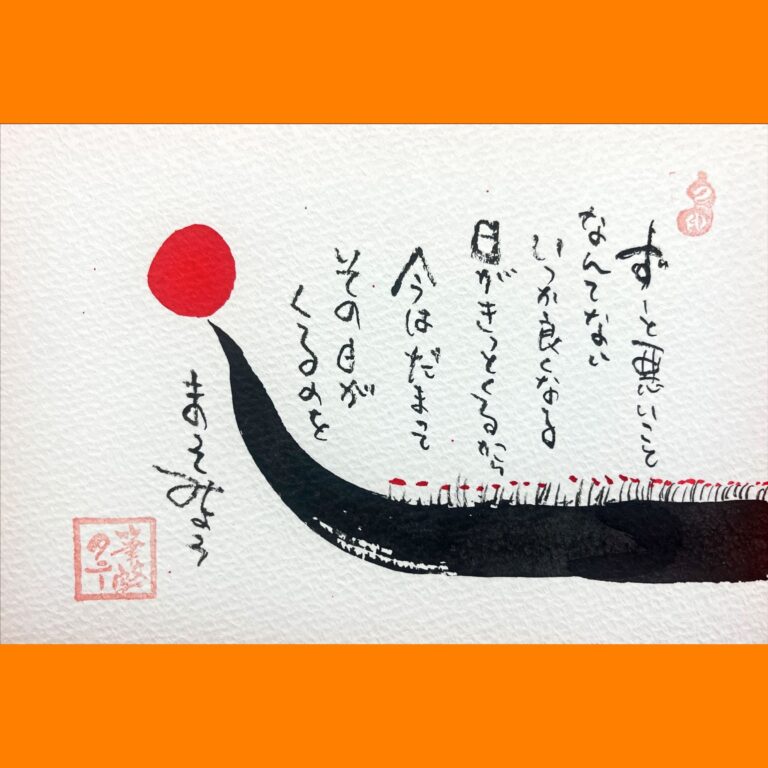 ずーと悪いこと
なんてない
いつか良くなる
日がきっとくるから
今はだまって
その日が
くるのを
まてみよう